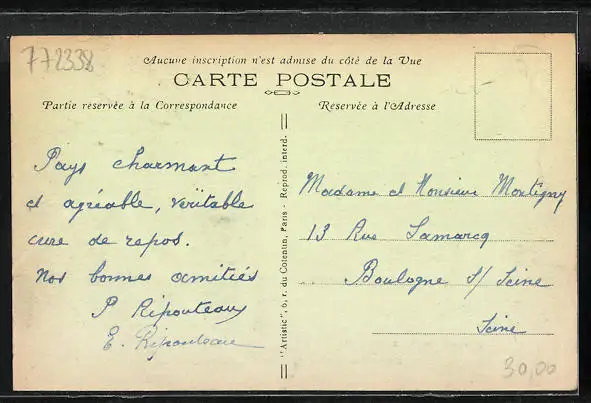 772338
Aucune inscription n'est admise du côté de la Vue
CARTE POSTALE
Partie reservée à la Correspondance
Reservée à l'Adresse
Pays charmant
et agréable, véritable
cure de repos.
Nos bonnes amitiés
P Ripouteau
E. Ripouteau
"Artistic", 6, r. du Cotentin, Paris - Reprod. interd.
Madame et Monsieur Montigny
13 Rue Lamarcq
Boulogne s/ Seine
Seine
30,00